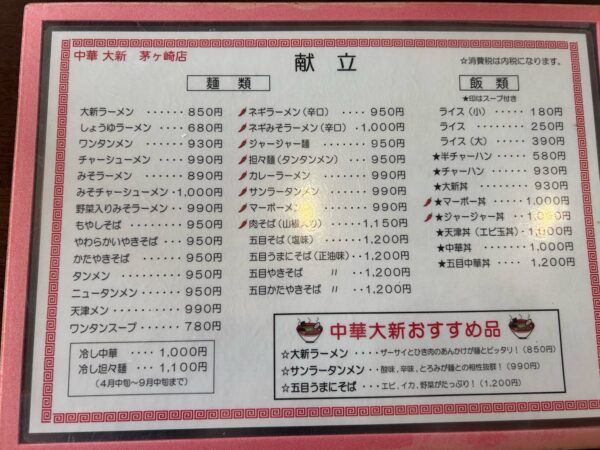 中華 大新 茅ヶ崎店
献立
☆消費税は内税になります。
麺類
大新ラーメン ······ 850円
しょうゆラーメン ···· 680円
ワンタンメン ······ 930円
チャーシューメン ···· 990円
みそラーメン ······ 890円
みそチャーシューメン ·1,000円
野菜入りみそラーメン ·· 990円
もやしそば ······· 950円
やわらかいやきそば ··· 950円
かたやきそば ······ 950円
タンメン ········ 950円
ニュータンメン ····· 950円
天津メン ········ 990円
ワンタンスープ ····· 780円
冷し中華 ···· 1,000円
冷し坦々麺 ··· 1,100円
(4月中旬〜9月中旬まで)
ネギラーメン(辛口) ··· 950円
ネギみそラーメン(辛口) ·1,000円
ジャージャー麺 ····· 950円
坦々麺(タンタンメン) ·· 950円
カレーラーメン ····· 990円
サンラータンメン ···· 990円
マーボーメン ······ 990円
肉そば(山椒入り) ··· 1,150円
五目そば(塩味) ···· 1,200円
五目うまにそば(正油味) ·· 1,200円
五目やきそば 〃 ·· 1,200円
五目かたやきそば 〃 ·· 1,200円
飯類
★印はスープ付き
ライス(小) ···· 180円
ライス ······ 250円
ライス(大) ···· 390円
★半チャーハン ··· 580円
★チャーハン ···· 930円
★大新丼 ······ 930円
★マーボー丼 ··· 1,000円
★ジャージャー丼 ·· 1,090円
★天津丼(エビ玉丼) · 1,000円
★中華丼 ····· 1,000円
★五目中華丼 ··· 1,200円
中華大新おすすめ品
☆大新ラーメン ····ザーサイとひき肉のあんかけが麺とピッタリ!(850円)
☆サンラータンメン ··酸味、辛味、とろみが麺との相性抜群!(990円)
☆五目うまにそば ···エビ、イカ、野菜がたっぷり!(1,200円)